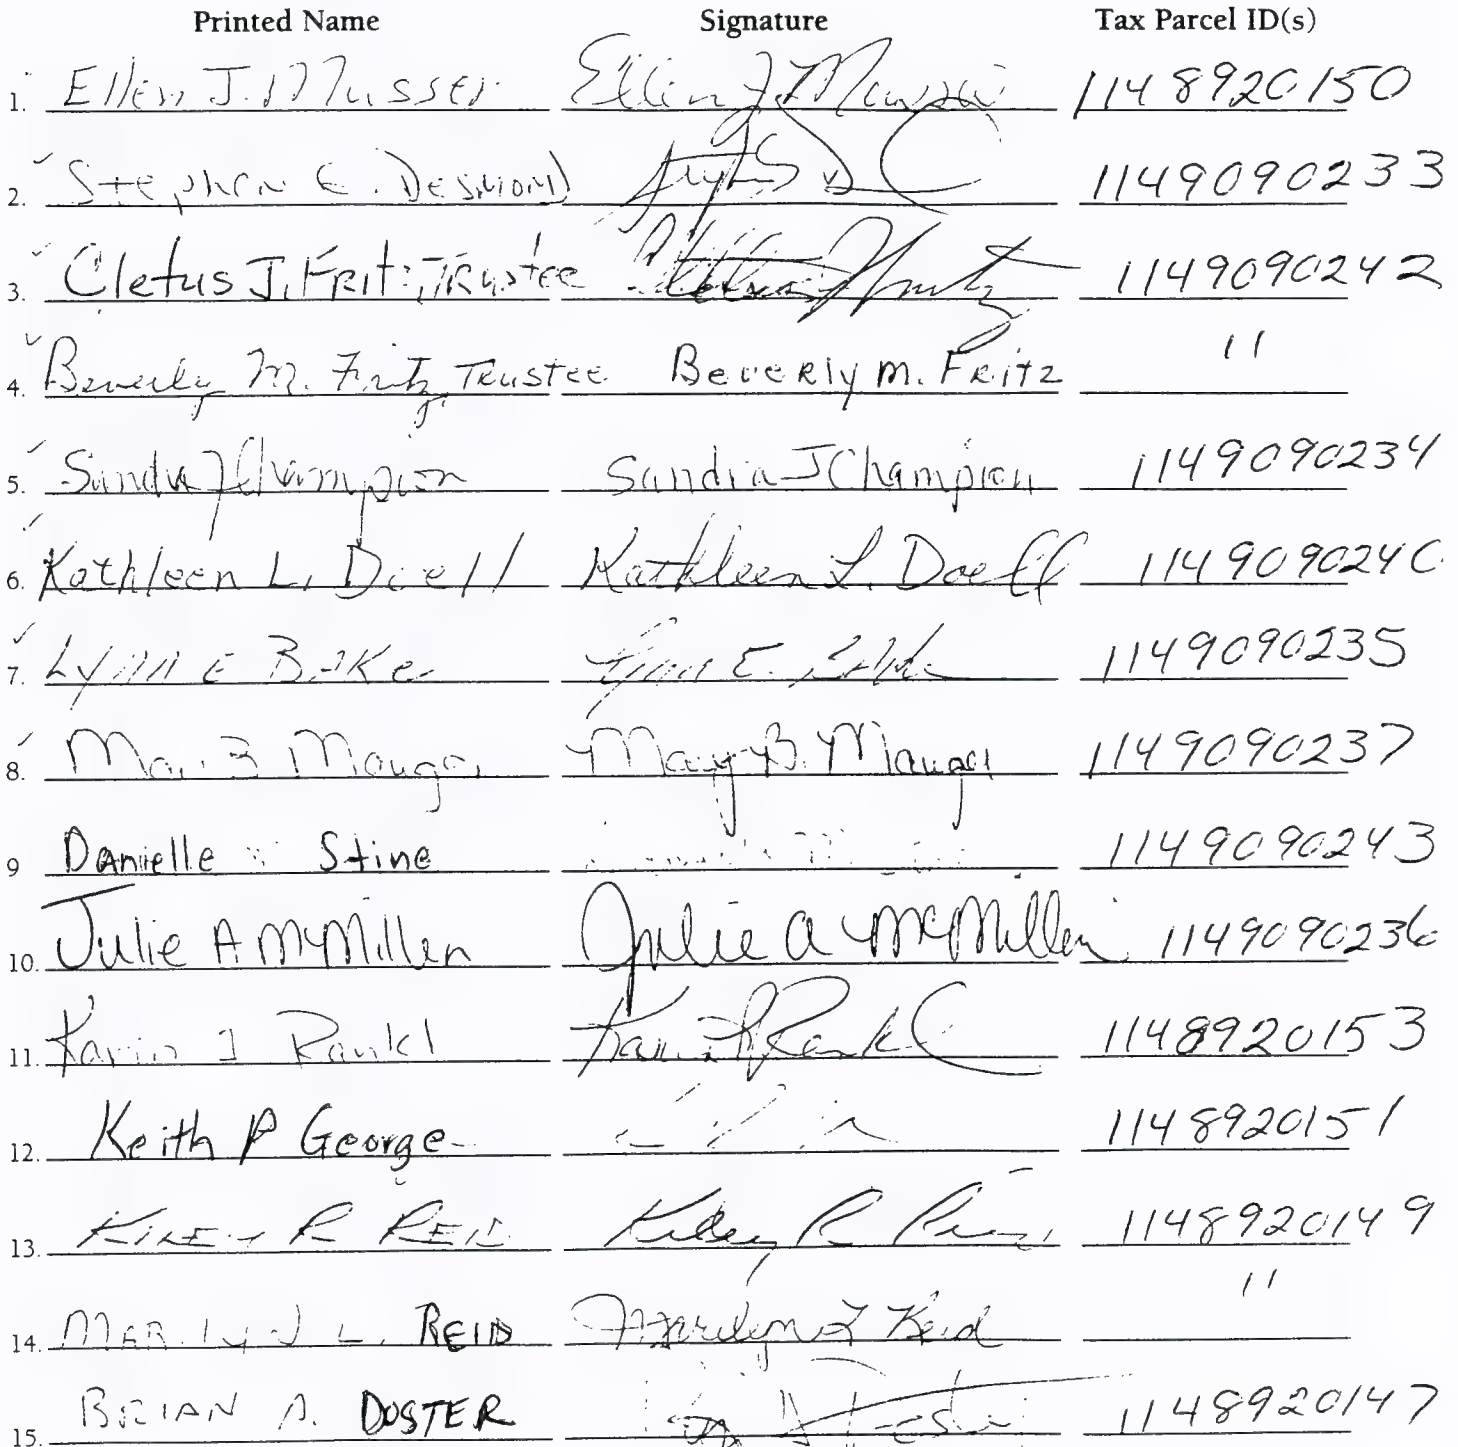 Printed Name Signature Tax Parcel ID(s)
1. Ellen J. Musser Ellen J. Musser 1148920150
2. Stephen E. Desmond 1149090233
3. Cletus J. Fritz, Trustee Cletus J Fritz 1149090242
4. Beverly M. Fritz, Trustee Beverly M. Fritz 11
5. Sandra J Champion Sandra J Champion 1149090234
6. Kathleen L. Doell Kathleen L. Doell 1149090240
7. Lynn E Baker Lynn E. Baker 1149090235
8. Mary B Mauger Mary B. Mauger 1149090237
9 Danielle Stine 1149090243
10. Julie A McMillen Julie A McMillen 1149090236
11. Karin J Rankl Karin J Rankl 1148920153
12. Keith P George 1148920151
13. R REID R 1148920149
14. MARILYN L. REID Marilyn L Reid 11
15. BRIAN A. DOSTER 1148920147